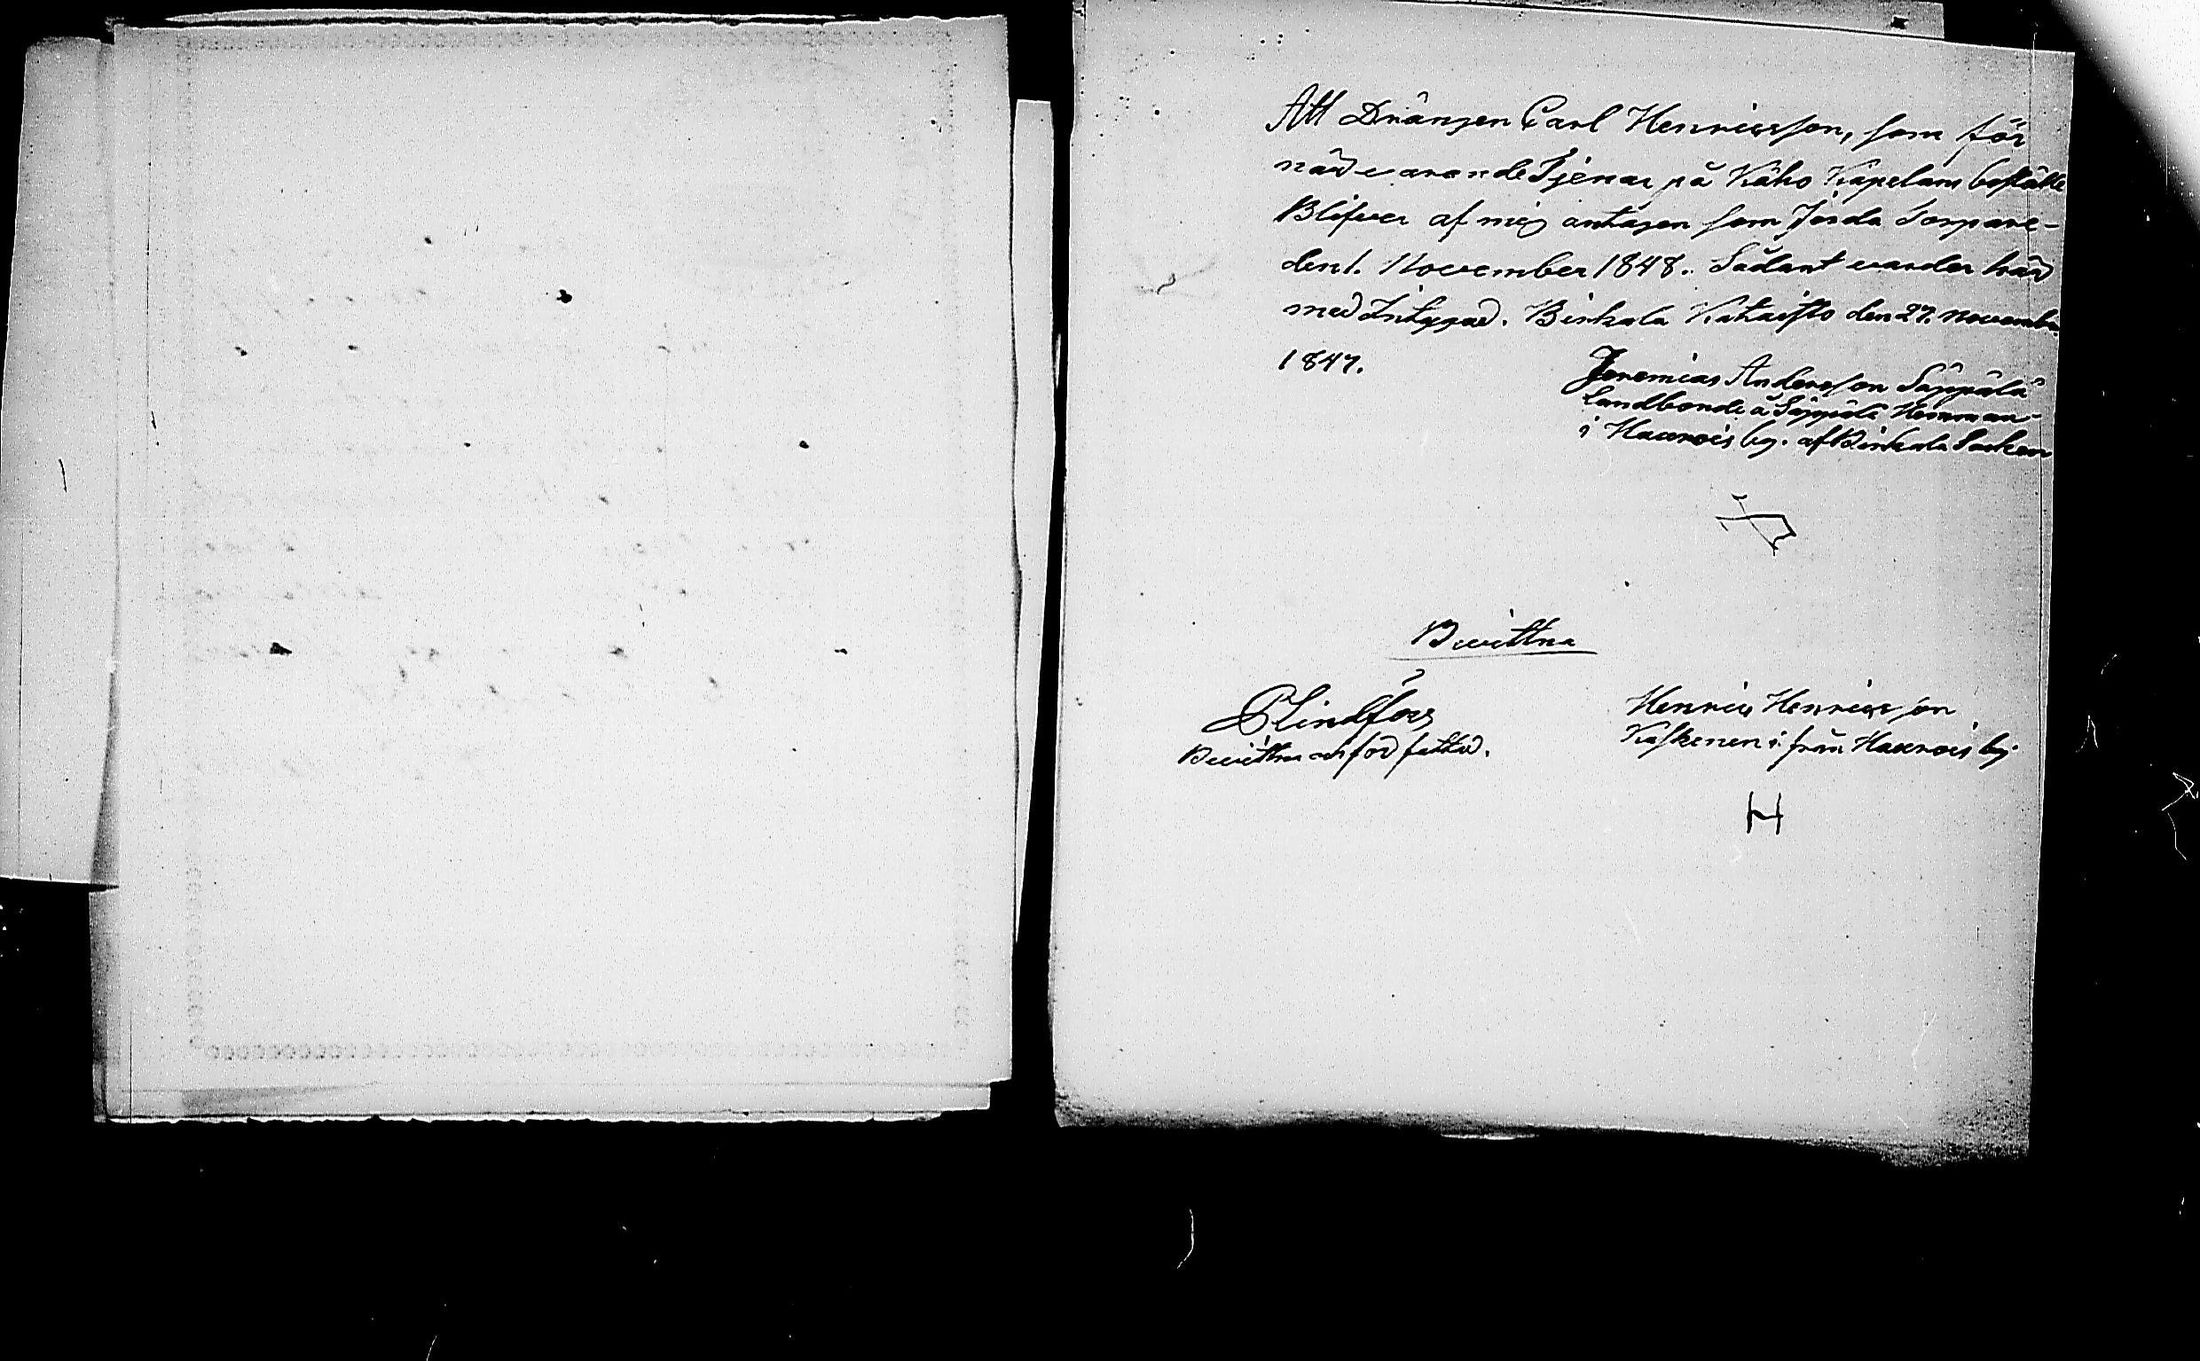 Att Drängen Carl Henricsson, som för
närvarande Tjenar på Kåho Kapelans boställe
Blifver af mig antagen som Jorda Torpare
den 1. November 1848. Sådant varder här
med Intygad. Birkala Kataisto den 27. Novemb.
1847.
Jeremias Andersson Säppälä
Landbonde å Säppälä Hemman
i Haverois by. af Birkala Socken
Bevittna
C Lindfors
Henric Henricsson
i från Haverois by.
H